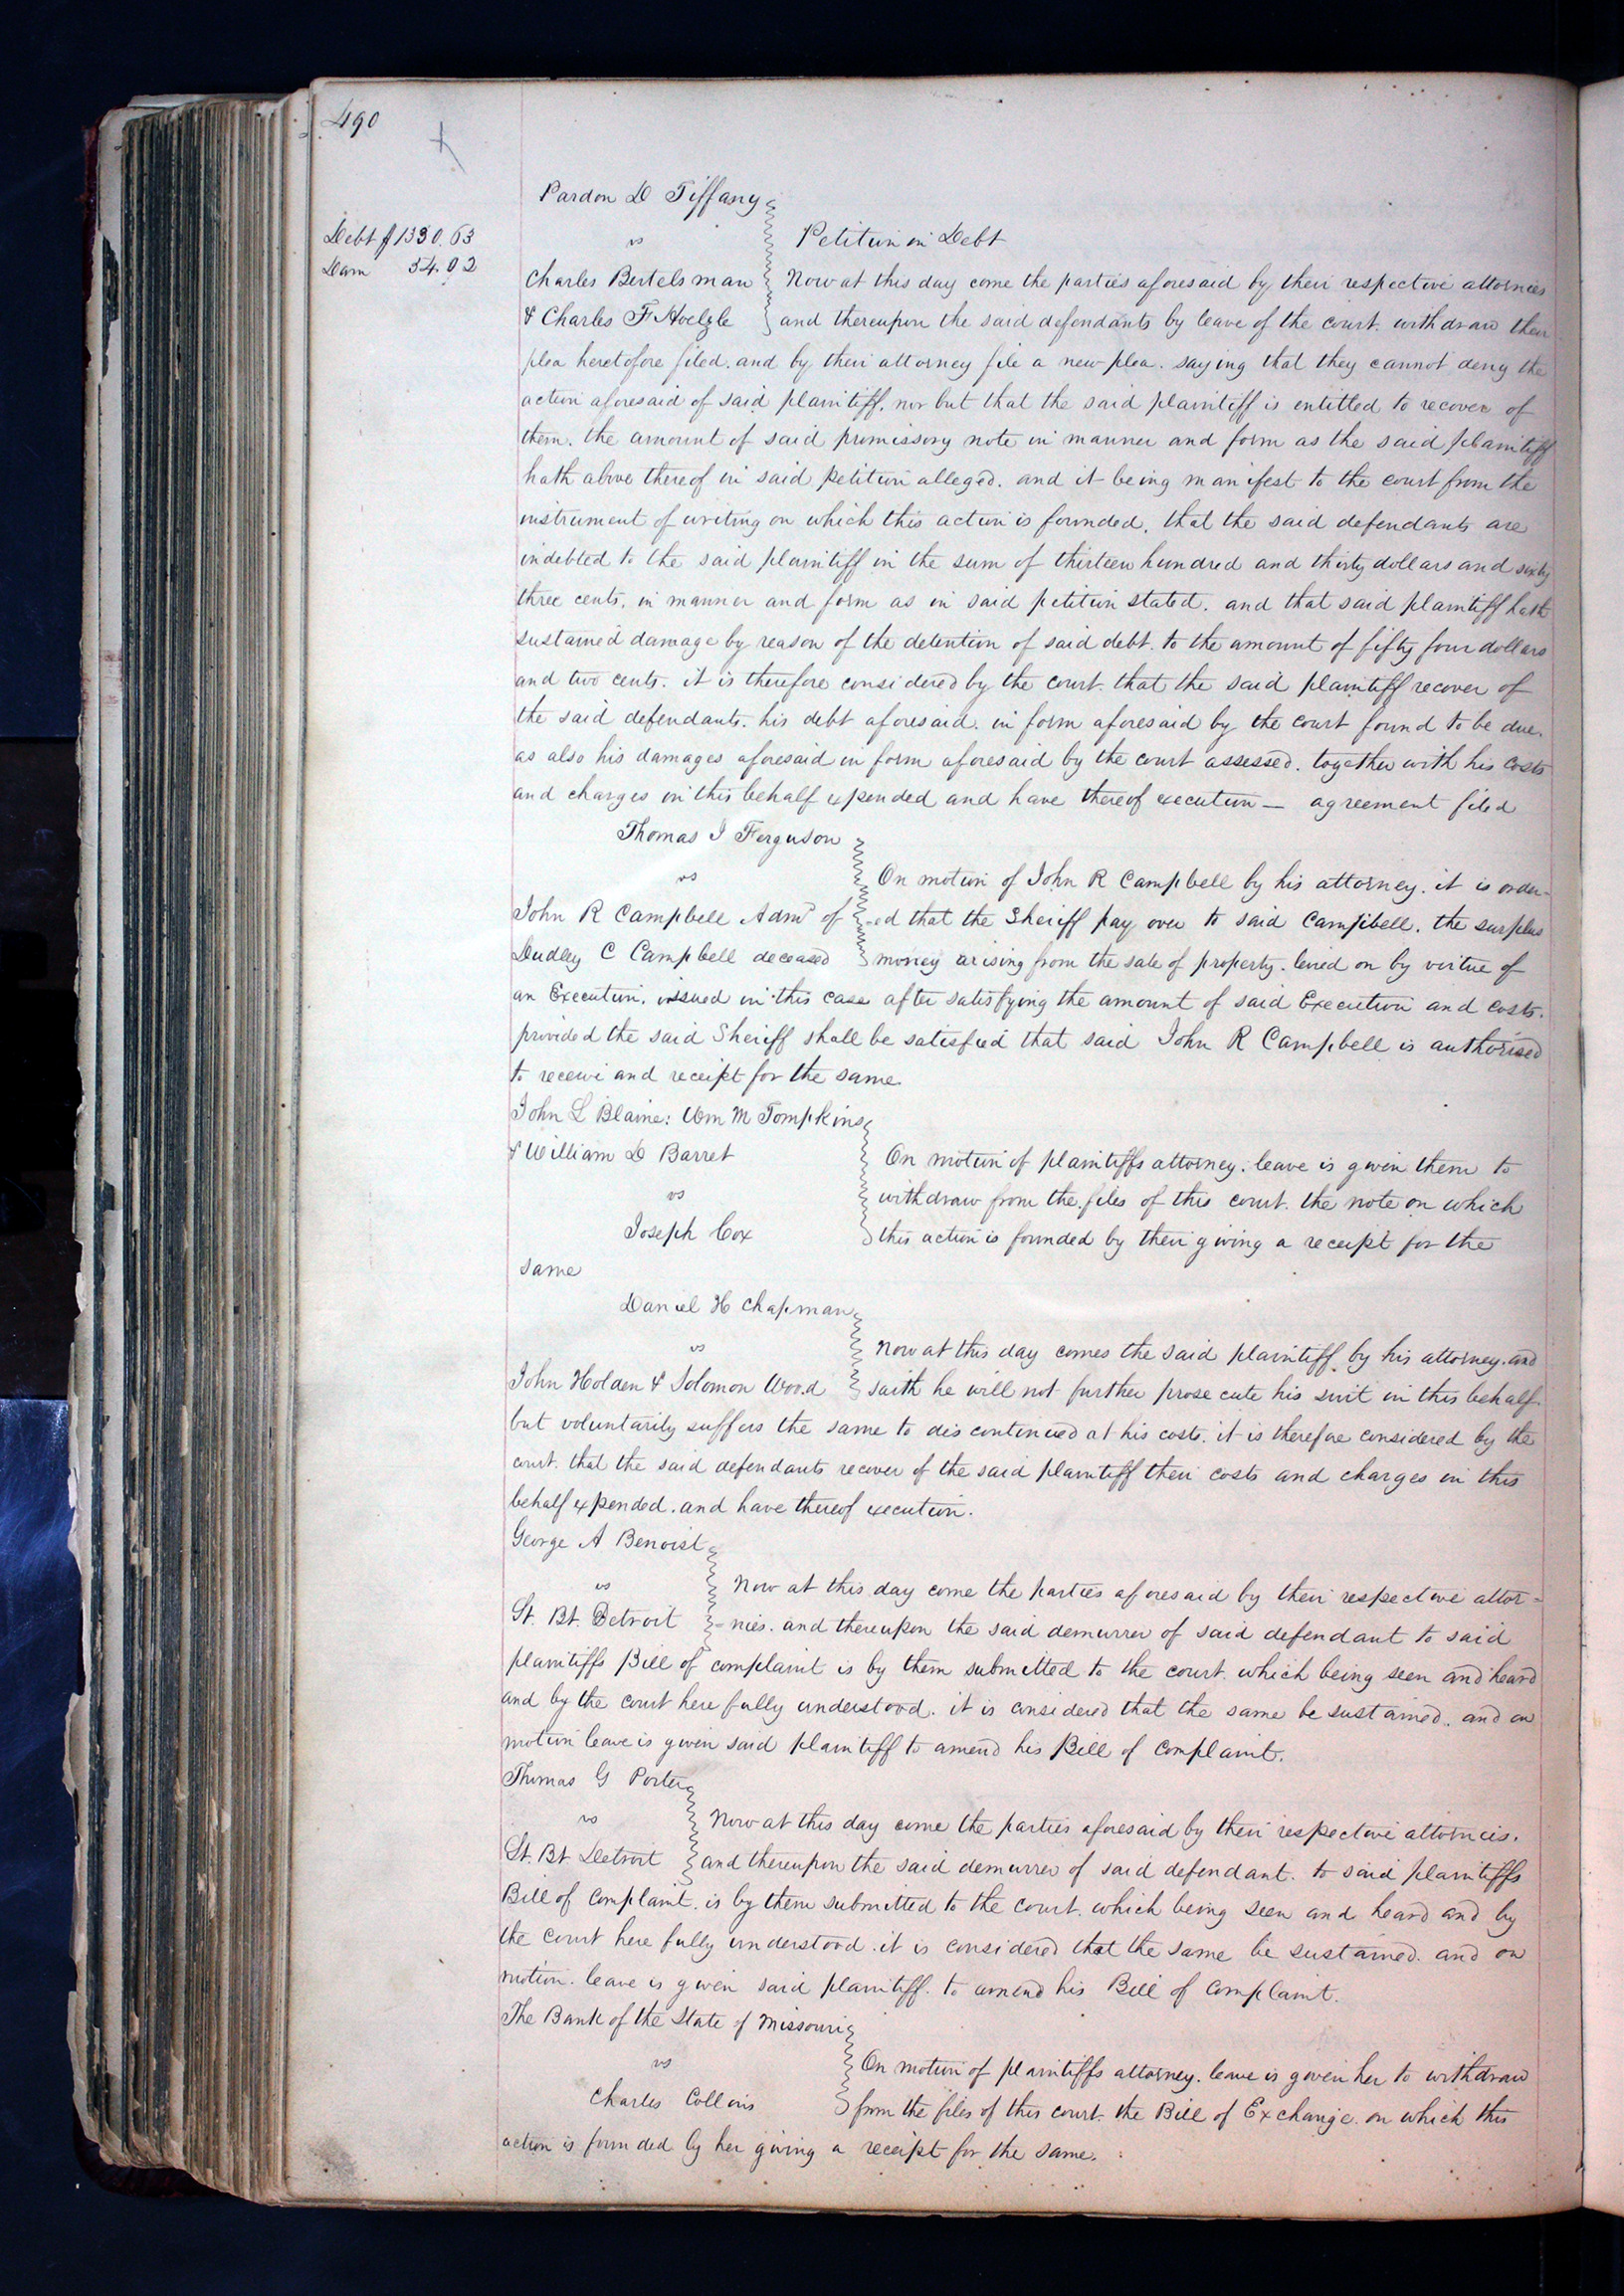 490
Pardon D Tiffany
Debt $1330.63 vs Petition in Debt
Dam 54.02
Charles Bertelsman Now at this day come the parties aforesaid by their respective attornies
& Charles F Hoelzle and thereupon the said defendants by leave of the court. withdraw their
plea heretofore filed. and by their attorney file a new plea. saying that they cannot deny the
action aforesaid of said plaintiff. nor but that the said plaintiff is entitled to recover of
them. the amount of said promissory note in manner and form as the said plaintiff
hath above thereof in said petition alleged. and it being manifest to the court from the
instrument of writing on which this action is founded. that the said defendants are
indebted to the said plaintiff in the sum of thirteen hundred and thirty dollars and sixty
three cents. in manner and form as in said petition stated. and that said plaintiff hath
sustained damage by reason of the detention of said debt. to the amount of fifty four dollars
and two cents. it is therefore considered by the court. that the said plaintiff recover of
the said defendants. his debt aforesaid. in form aforesaid by the court found to be due.
as also his damages aforesaid in form aforesaid by the court assessed. together with his costs
and charges in this behalf expended and have thereof execution — agreement filed
Thomas J Ferguson
vs On motion of John R Campbell by his attorney. it is order-
John R Campbell Admr of -ed that the Sheriff pay over to said Campbell. the surplus
Dudley C Campbell deceased money arising from the sale of property. levied on by virtue of
an Execution. issued in this case after satisfying the amount of said Execution and costs.
provided the said Sheriff shall be satisfied that said John R Campbell is authorised
to receive and receipt for the same.
John L Blaine: Wm M Tompkins
& William D Barret On motion of plaintiffs attorney. leave is given them to
vs withdraw from the files of this court. the note on which
Joseph Cox this action is founded by their giving a receipt for the
same
Daniel H Chapman
vs Now at this day comes the said plaintiff by his attorney. and
John Holden & Solomon Wood saith he will not further prosecute his suit in this behalf.
but voluntarily suffers the same to discontinued at his costs. it is therefore considered by the
court. that the said defendants recover of the said plaintiff their costs and charges in this
behalf expended. and have thereof execution.
George A Benoist
vs Now at this day come the parties aforesaid by their respective attor=
St. Bt. Detroit =nies. and thereupon the said demurrer of said defendant to said
plaintiffs Bill of complaint is by them submitted to the court. which being seen and heard
and by the court here fully understood. it is considered that the same be sustained. and on
motion leave is given said plaintiff to amend his Bill of complaint.
Thomas G Porter
vs Now at this day come the parties aforesaid by their respective attornies.
St. Bt. Detroit and thereupon the said demurrer of said defendant. to said plaintiffs
Bill of complaint. is by them submitted to the court. which being seen and heard and by
the court here fully understood. it is considered that the same be sustained. and on
motion. leave is given said plaintiff. to amend his Bill of complaint.
The Bank of the State of Missouri
vs On motion of plaintiffs attorney. leave is given her to withdraw
Charles Collins from the files of this court. the Bill of Exchange. on which this
action is founded by her giving a receipt for the same.